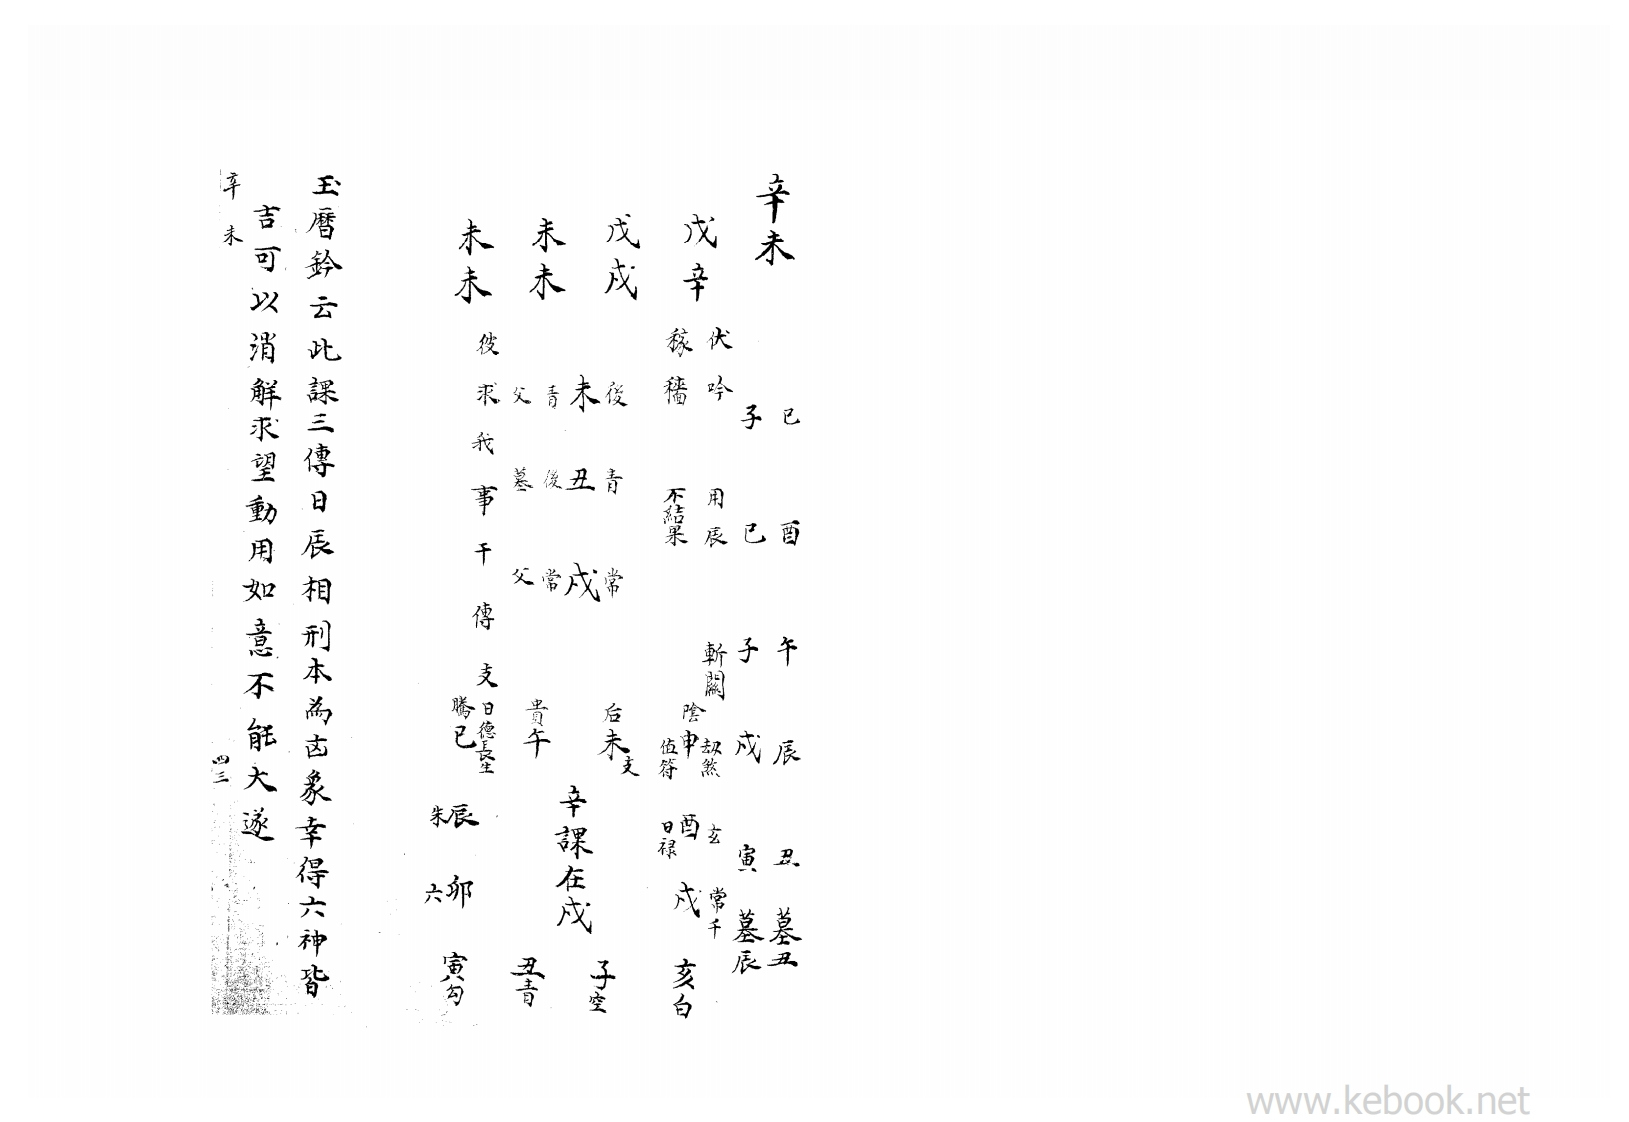 辛未
巳 酉 午 辰 丑 墓丑
子 巳 子 戌 寅 墓辰
戌辛
戌戌
未未
未未
伏吟 用辰 斬關
稼穡 不結果
後 青 常
未 丑 戌
青 後 常
父 墓 父
彼求我事干傳支
陰申 劫煞 值符
后未 支
貴午
騰巳 日德長生
玄 酉 日禄
常干 戌
辛課在戌
朱辰
六卯
亥白
子空
丑青
寅勾
玉曆鈐云此課三傳日辰相刑本為凶象幸得六神皆
吉可以消解求望動用如意不能大遂
辛未
四三
www.kebook.net